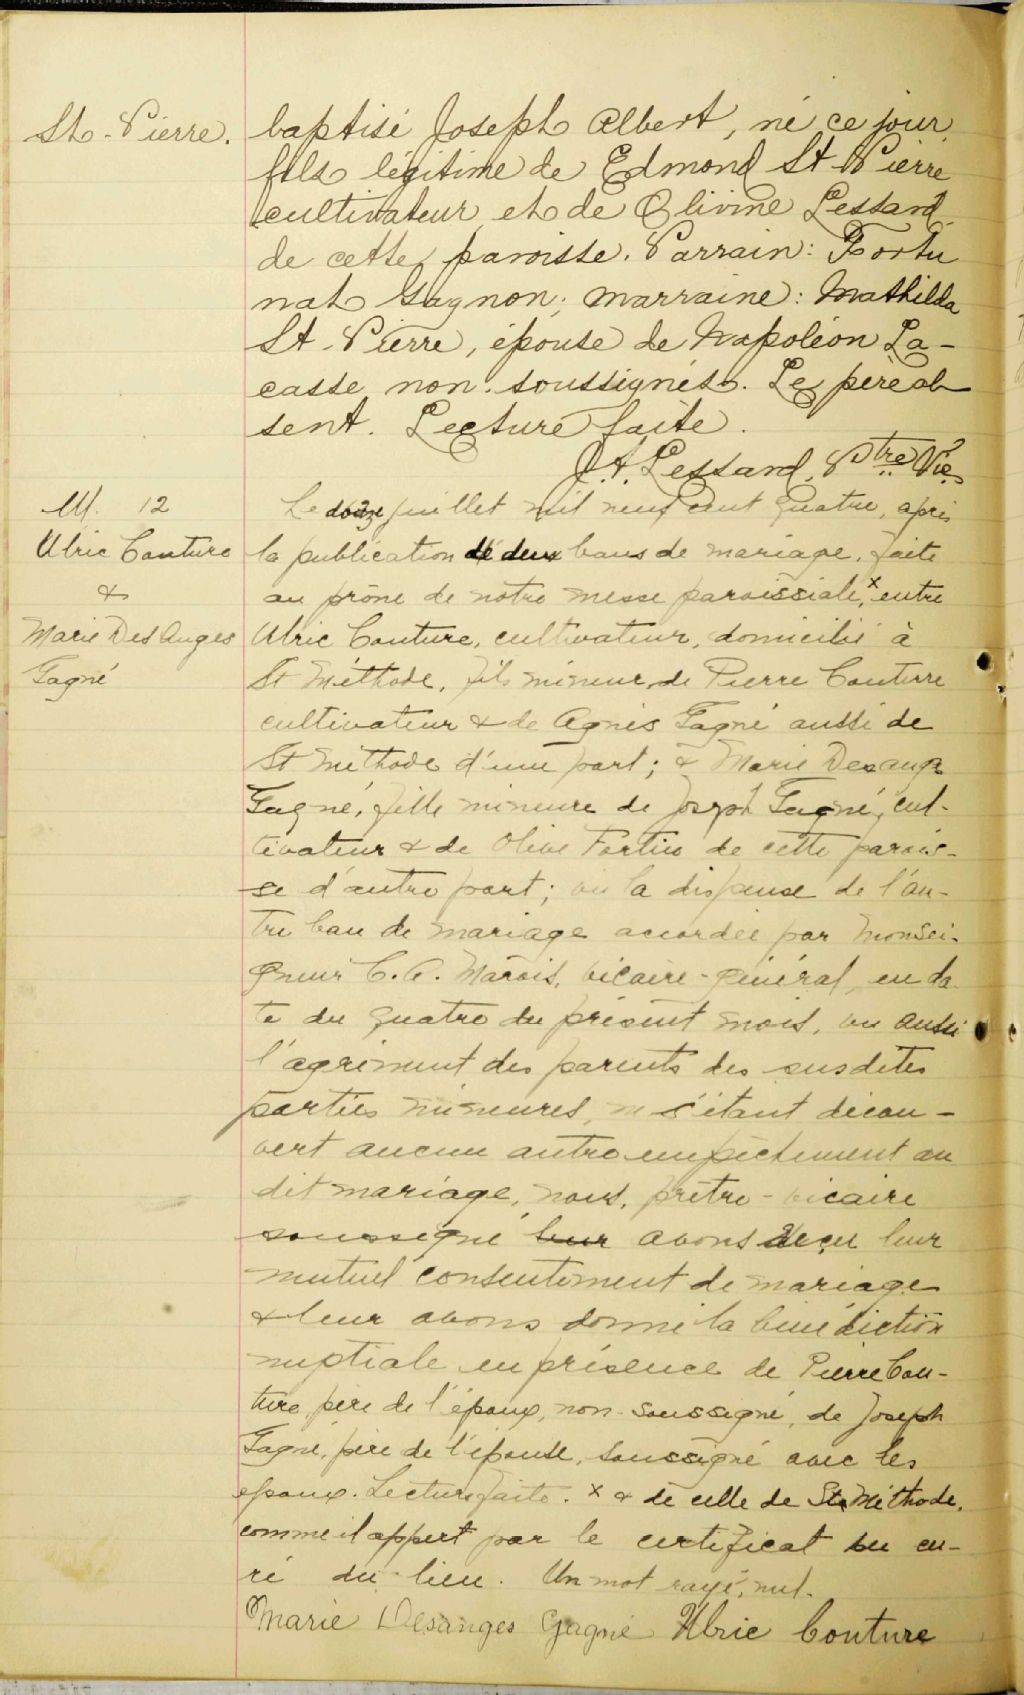 St-Pierre.
baptisé Joseph Albert, né ce jour
fils légitime de Edmond St-Pierre
cultivateur et de Olivine Lessard
de cette paroisse. Parrain: Fortu
nat Gagnon; marraine: Mathilda
St-Pierre, épouse de Napoléon La-
casse non soussignés. Le père ab
sent. Lecture faite.
J. A. Lessard, Ptre Vic.
M. 12
Ulric Couture
&
Marie Des Anges
Gagné
Le douze juillet mil neuf cent quatre, après
la publication de deux bans de mariage, faite
au prône de notre messe paroissiale, x entre
Ulric Couture, cultivateur, domicilié à
St Méthode, fils mineur de Pierre Couture
cultivateur & de Agnès Gagné aussi de
St Méthode d'une part; & Marie Desange
Gagné, fille mineure de Joseph Gagné, cul-
tivateur & de Olive Fortin de cette parois-
se d'autre part; vu la dispense de l'au-
tre ban de mariage accordée par Monsei-
gneur C. A. Marois, vicaire-général, en da
te du quatre du présent mois, vu aussi
l'agrément des parents des susdites
parties mineures, ne s'étant décou-
vert aucun autre empêchement au
dit mariage, nous, prêtre-vicaire
soussigné leur avons reçu leur
mutuel consentement de mariage
& leur avons donné la bénédiction
nuptiale en présence de Pierre Cou-
ture, père de l'époux, non-soussigné, de Joseph
Gagné, père de l'épouse, soussigné avec les
époux. Lecture faite. x & de celle de St Méthode,
comme il appert par le certificat du cu-
ré du lieu. Un mot rayé, nul.
Marie Desanges Gagné Ulric Couture